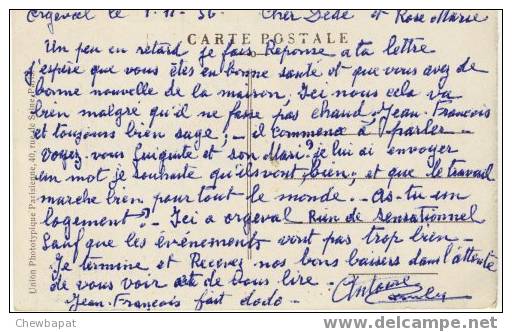 Orgeval le 1-11-56- Cher Dédé et Rose Marie
CARTE POSTALE
Un peu en retard je fais Reponse a ta lettre
j'espère que vous êtes en bonne santé et que vous avez de
bonne nouvelle de la maison. Ici nous cela va
bien malgré qu'il ne fasse pas chaud. Jean-François
et toujours bien sage, - il commence à parler -
Voyez-vous Guiguite et son Mari? je lui ai envoyer
un mot je souhaite qu'ils vont, bien, et que le travail
marche bien pour tout le monde. - As-tu un
logement? - Ici a orgeval Rien de Sensationnel
Sauf que les événements vont pas trop bien -
Je termine et Recevez nos bons baisers dans l'attente
de vous voir de vous lire - Antoine
Jean-François fait dodo -
Union Phototypique Parisienne, 40, rue de Seine, Paris
© Chewbapat
delcampe.net